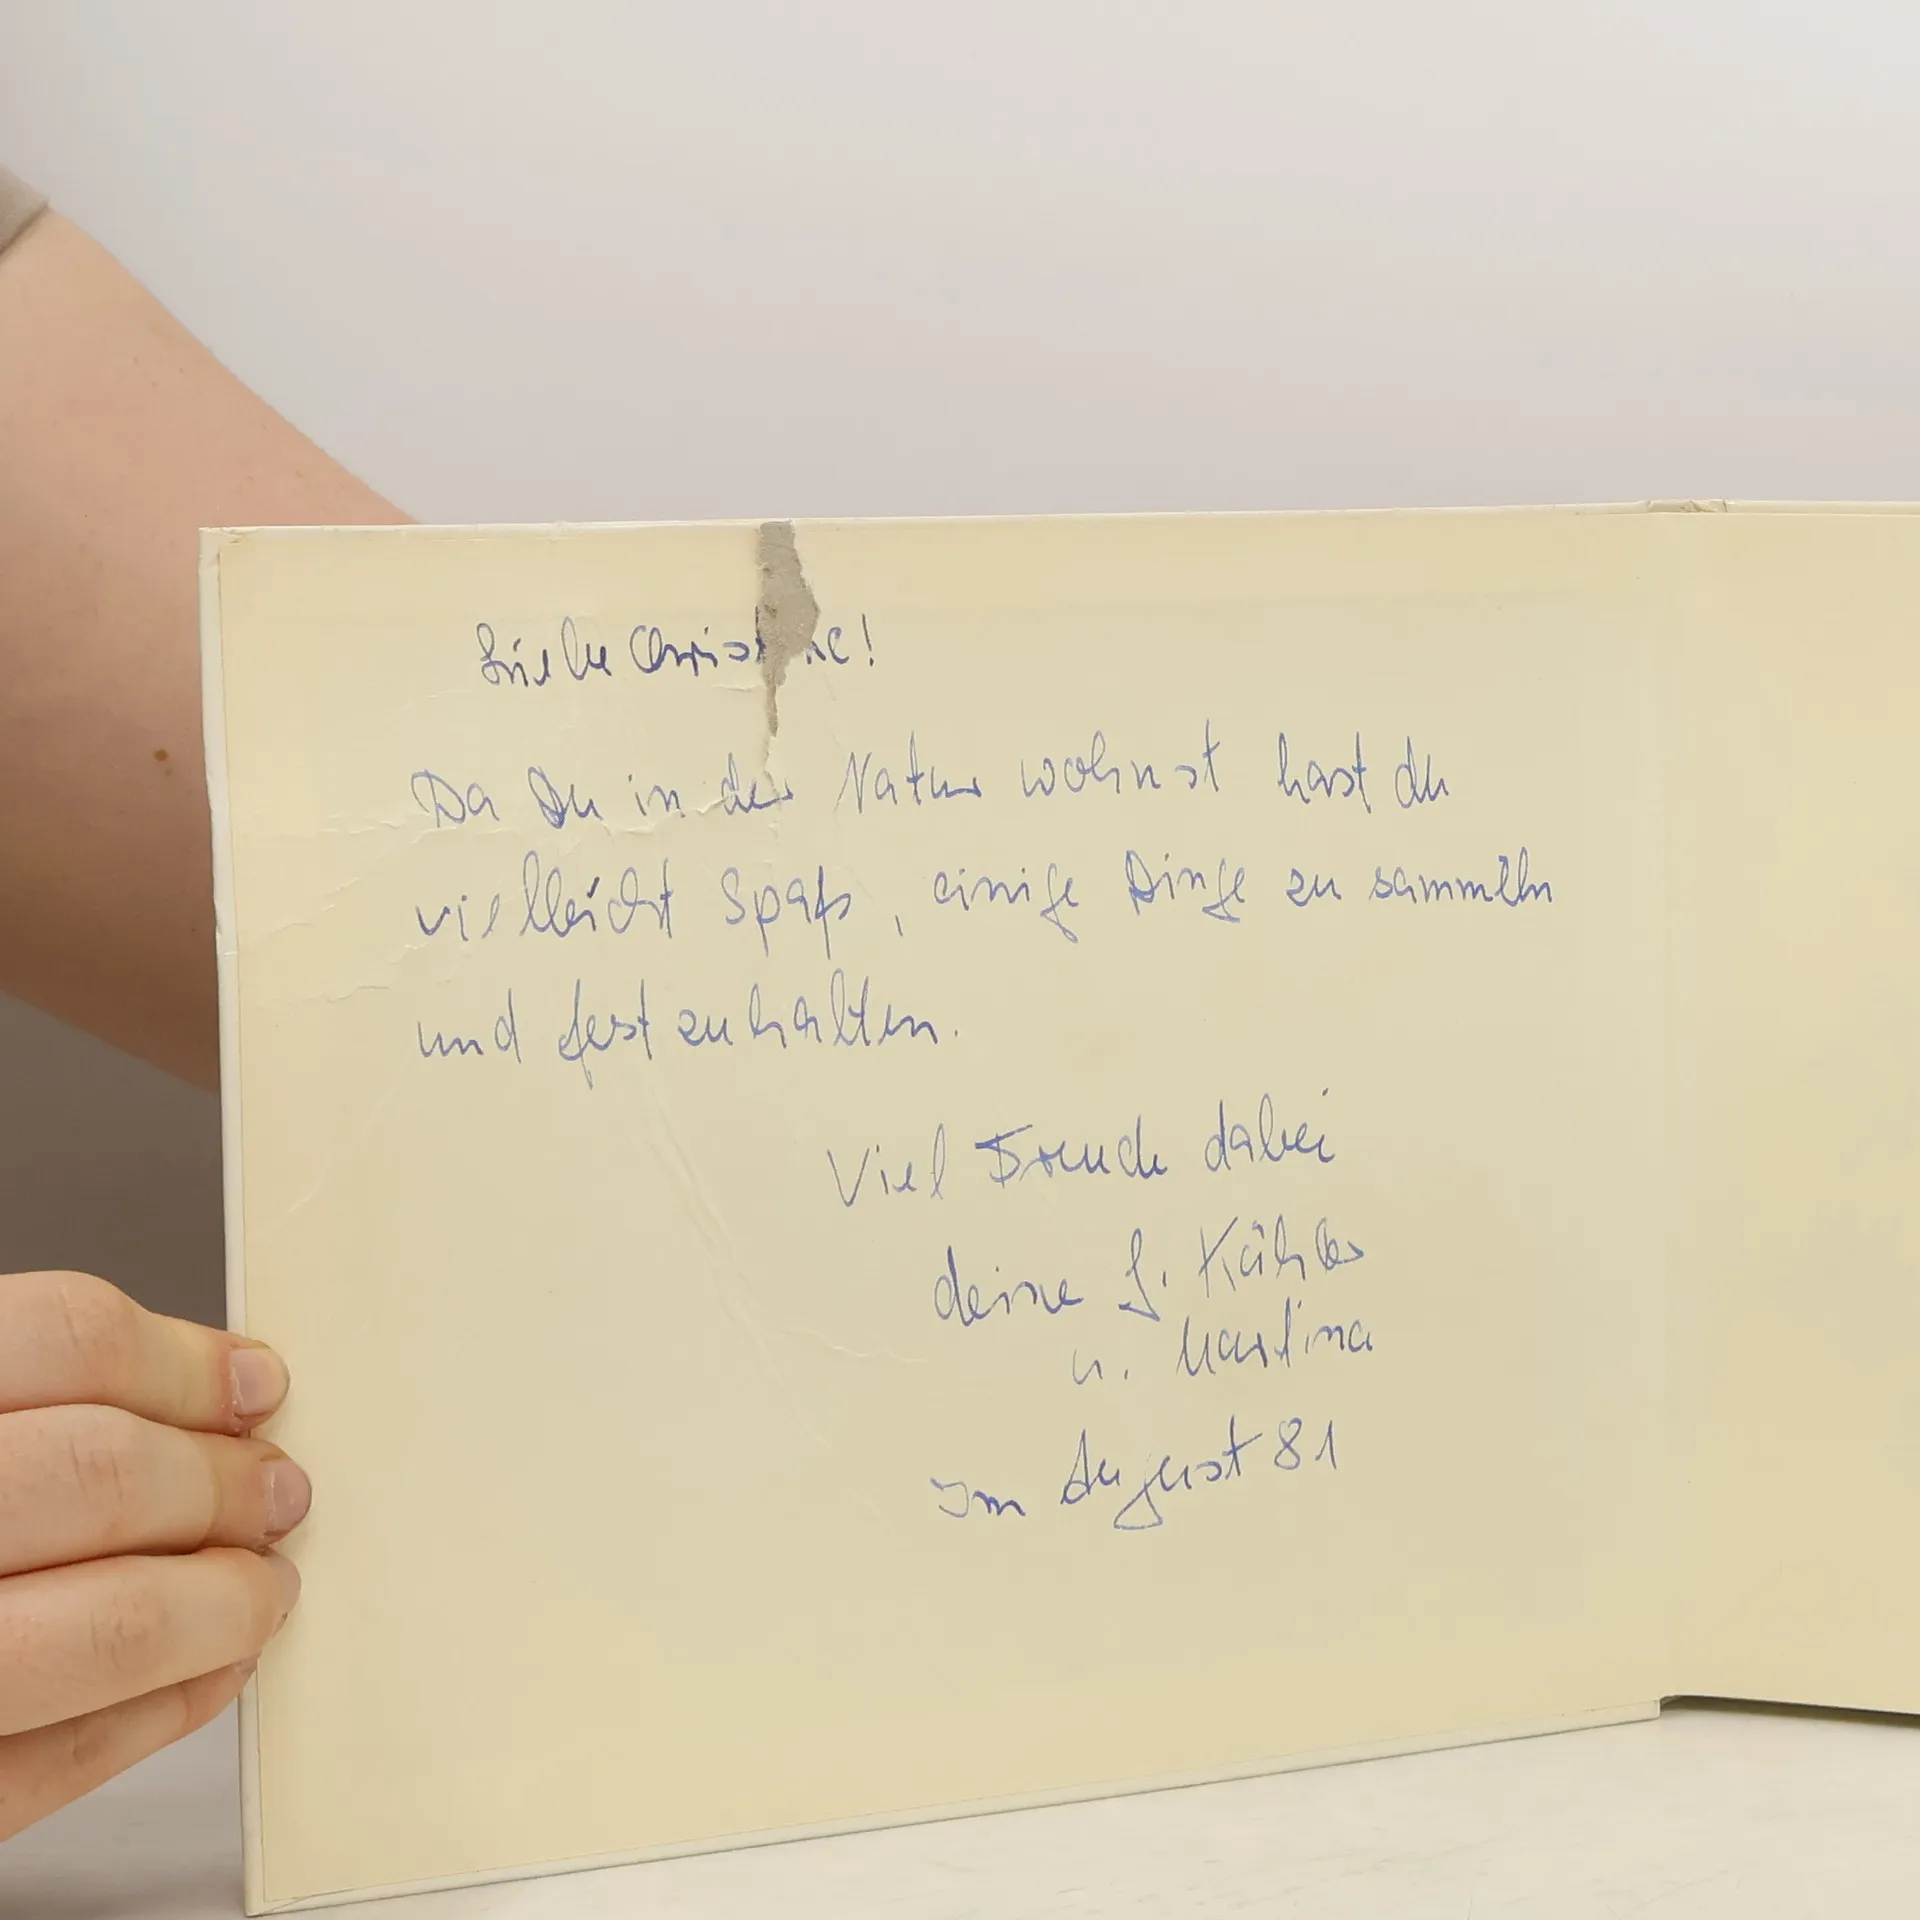 Liebe
Da Du in der Natur wohnst hast du
vielleicht Spaß, einige Dinge zu sammeln
und festzuhalten.
Viel Freude dabei
deine J. Kähler
u. Martina
Im August 81